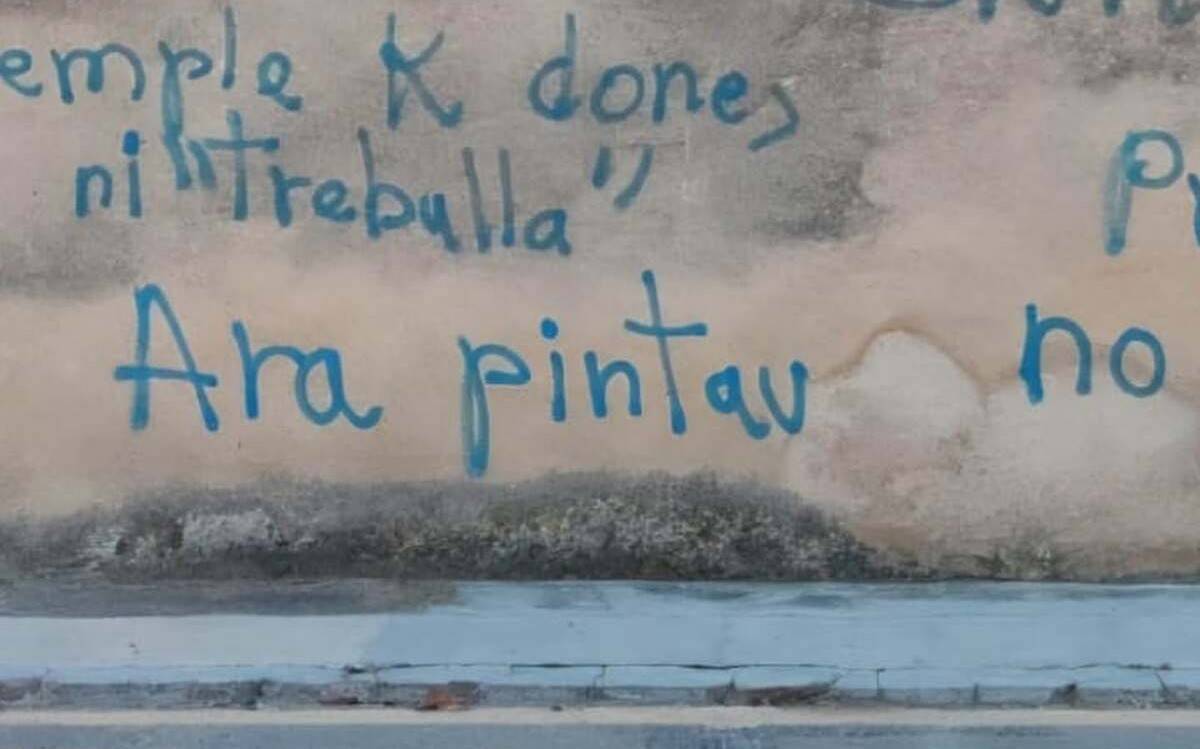 emple K dones
ni "trebulla"
Ara pintau no